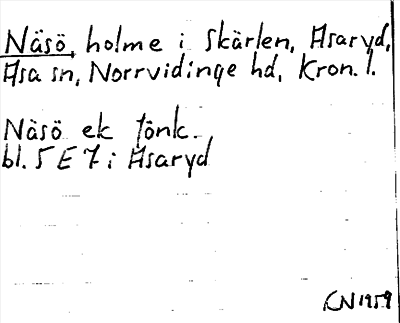 Näsö, holme i Skärlen, Asaryd,
Asa sn, Norrvidinge hd, Kron. l.
Näsö ek tönk.
bl. 5 E 7 i Asaryd
CN 1959